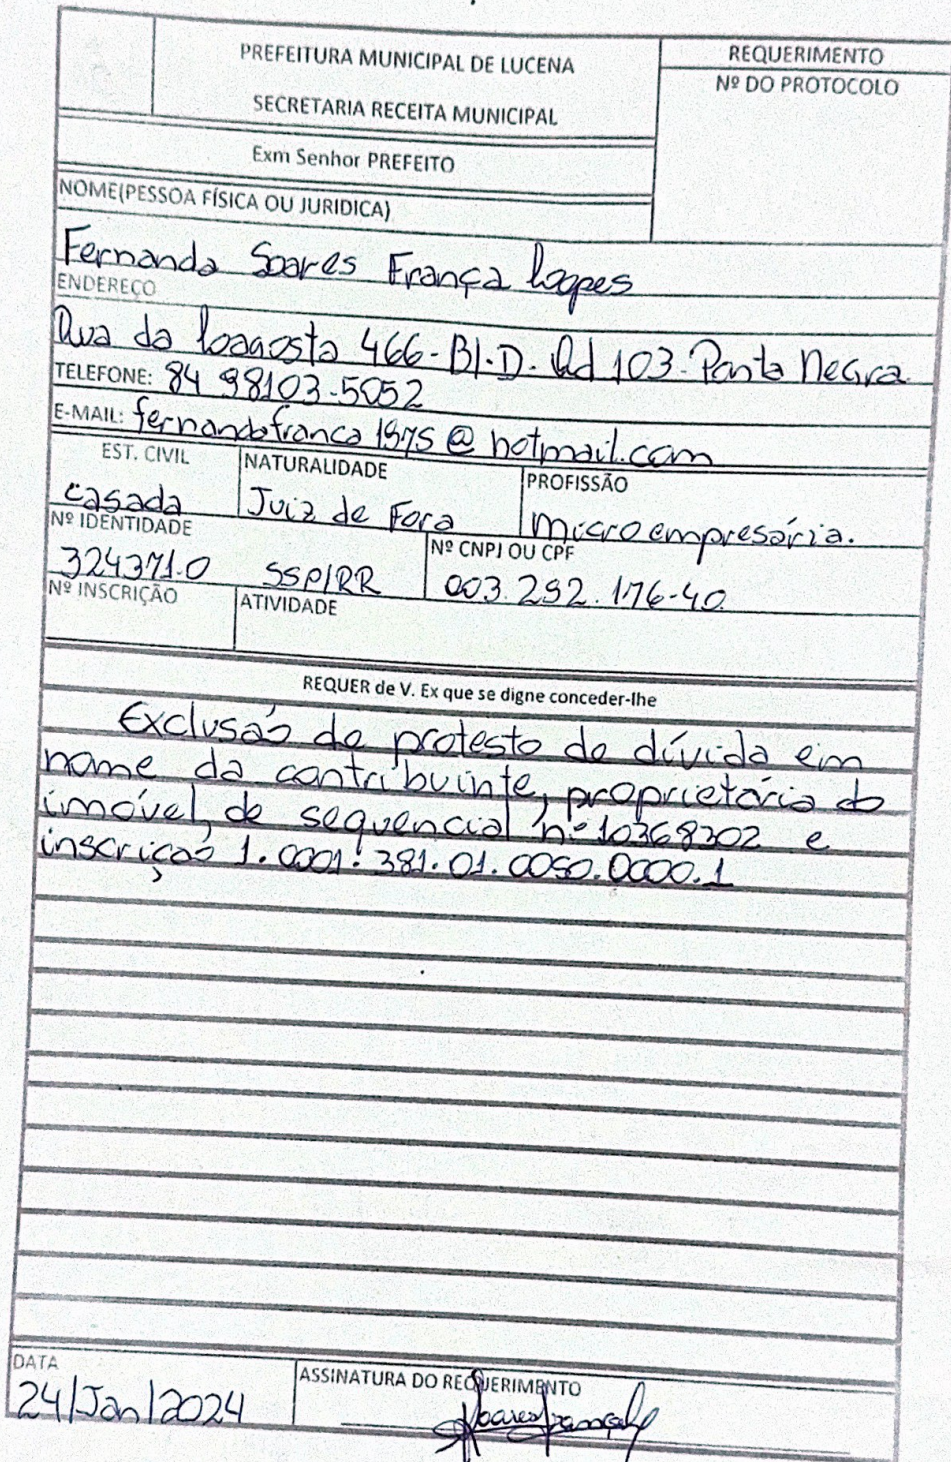 PREFEITURA MUNICIPAL DE LUCENA
SECRETARIA RECEITA MUNICIPAL
REQUERIMENTO
Nº DO PROTOCOLO
Exm Senhor PREFEITO
NOME(PESSOA FÍSICA OU JURIDICA)
Fernanda Soares França Lopes
ENDEREÇO
Rua da Lagosta 466-Bl.D. 103. Ponta Negra.
TELEFONE: 84 98103-5052
E-MAIL: fernandafranca1975@hotmail.com
EST. CIVIL NATURALIDADE PROFISSÃO
casada Juiz de Fora microempresária.
Nº IDENTIDADE Nº CNPJ OU CPF
324371.0 SSP/RR 003.292.176-40
Nº INSCRIÇÃO ATIVIDADE
REQUER de V. Ex que se digne conceder-lhe
Exclusão de protesto de dívida em
nome da contribuinte, proprietária do
imóvel, de sequencial nº 10368302 e
inscrição 1.0001.381.01.0050.0000.1
DATA ASSINATURA DO REQUERIMENTO
24/Jan/2024